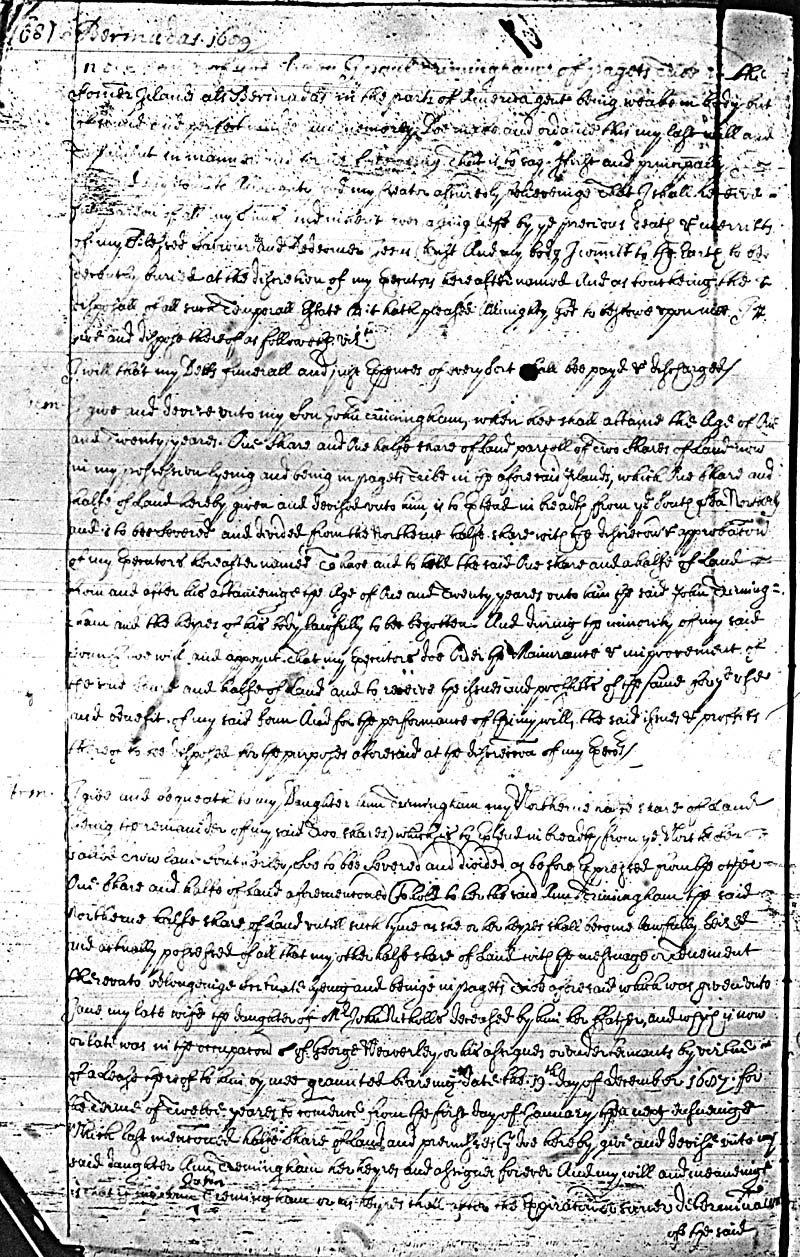 (68) Bermudas 1689
of Pagets Tribe in the
Somer Islands als Bermudas in the parts of America gent being weake in body but
and perfect and memory Doe make and ordaine this my last will and
in manner and forme following That is to say First and principally
my Creator assuredly believeinge That I shall receive
of all my Sinns by ye precious death & merritts
of my blessed Saviour and Redeemer Jesus Christ And my body I comitt to the Earth to be
decently buried at the discretion of my Executors hereafter named And as touching the
disposall of all such Temporall Estate as it hath pleased Almighty God to bestow upon mee I
give and dispose thereof as followeth vizt
I will that my Debts funerall and just Expences of every sort shall bee payd & discharged
Item I give and devise unto my Son John Trimingham, when hee shall attaine the Age of One
and Twenty yeares One Share and One halfe share of Land parcell of Two Shares of Land now
in my possession lyeing and being in Pagets Tribe in the aforesaid Islands, which One Share and
halfe of Land hereby given and devised unto him is to Extend in breadth from ye South Sea Northerly
and is to bee severed and divided from the Northerne halfe share with the discretion & approbation
of my Executors hereafter named To have and to hold the said One share and a halfe of Land
from and after his attaineinge the Age of One and Twenty yeares unto him the said John Triming=
ham and the heyres of his body lawfully to bee begotten And during the minority of my said
Sonn I doe will and appoynt That my Executors doe Order the Manurance & improvement of
the said share and halfe of Land and to receive the issues and proffitts of the same for ye use
and benefit of my said Sonn And for the performance of this my will, the said issues & proffits
thereof to bee disposed for the purposes aforesaid at the discretion of my Execrs
Item I give and bequeath to my Daughter Ann Trimingham my Northerne halfe share of Land
(being the remainder of my said Two shares) which is to Extend in breadth from ye North
to bee severed and divided as before Expressed from the other
One Share and halfe of Land aforementioned To hold to her the said Ann Trimingham the said
Northerne halfe share of Land untill such tyme as she or her heyres shall become lawfully seized
and actually possessed of all that my other halfe share of Land with the messuage or Tenement
thereunto belongeinge scituate lyeing and beinge in Pagets Tribe aforesaid which was given unto
Jane my late wife the daughter of Mr John Nicholls deceased by him her Father, and which is now
or late was in the occupation of George Weaverley, or his assignes or undertennants by virtue
of a Lease thereof to him by mee graunted beareing date the 19th day of December 1687 for
the Terme of Twelve yeares to comence from the first day of January then next ensueinge
Which last mentioned halfe share of Land and premisses I doe hereby give and devise unto my
said daughter Ann Trimingham her heyres and assignes forever And my will and meaneing
is that if my John Trimingham or his heyres shall after the Expiration or sooner determination
of the said